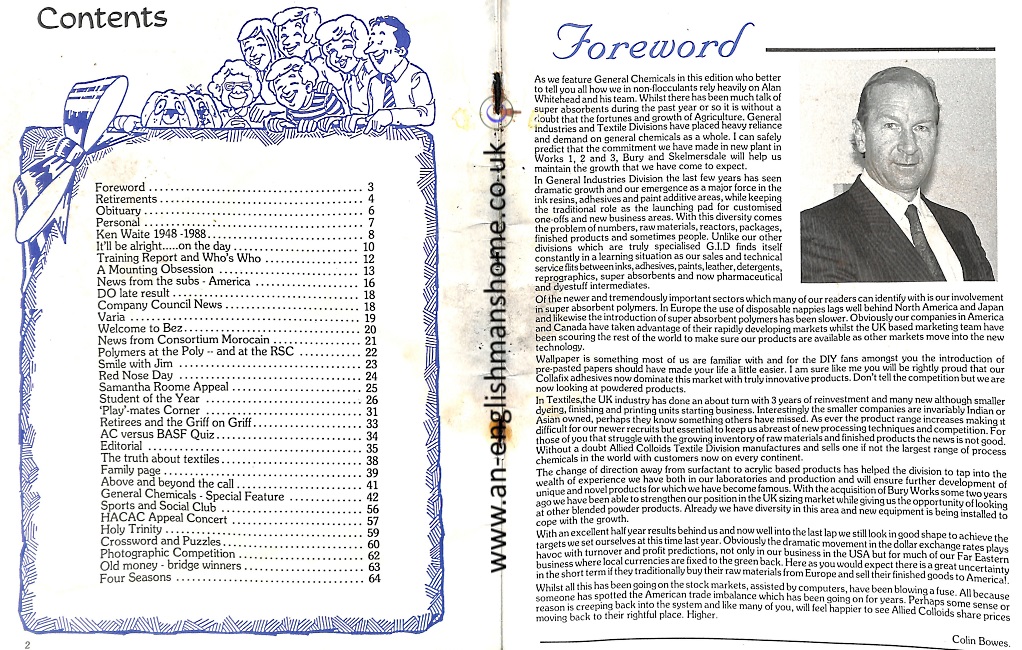 Contents
Foreword 3
Retirements 4
Obituary 6
Personal 7
Ken Waite 1948 -1988 8
It'll be alright.....on the day 10
Training Report and Who's Who 12
A Mounting Obsession 13
News from the subs - America 16
DO late result 18
Company Council News 18
Varia 19
Welcome to Bez 20
News from Consortium Morocain 21
Polymers at the Poly -- and at the RSC 22
Smile with Jim 23
Red Nose Day 24
Samantha Roome Appeal 25
Student of the Year 26
'Play'-mates Corner 31
Retirees and the Griff on Griff 33
AC versus BASF Quiz 34
Editorial 35
The truth about textiles 38
Family page 39
Above and beyond the call 41
General Chemicals - Special Feature 42
Sports and Social Club 56
HACAC Appeal Concert 57
Holy Trinity 59
Crossword and Puzzles 60
Photographic Competition 62
Old money - bridge winners 63
Four Seasons 64
2
www.an-englishmanshome.co.uk
Foreword
As we feature General Chemicals in this edition who better
to tell you all how we in non-flocculants rely heavily on Alan
Whitehead and his team. Whilst there has been much talk of
super absorbents during the past year or so it is without a
doubt that the fortunes and growth of Agriculture. General
Industries and Textile Divisions have placed heavy reliance
and demand on general chemicals as a whole. I can safely
predict that the commitment we have made in new plant in
Works 1, 2 and 3, Bury and Skelmersdale will help us
maintain the growth that we have come to expect.
In General Industries Division the last few years has seen
dramatic growth and our emergence as a major force in the
ink resins, adhesives and paint additive areas, while keeping
the traditional role as the launching pad for customised
one-offs and new business areas. With this diversity comes
the problem of numbers, raw materials, reactors, packages,
finished products and sometimes people. Unlike our other
divisions which are truly specialised G.I.D finds itself
constantly in a learning situation as our sales and technical
service flits between inks, adhesives, paints, leather, detergents,
reprographics, super absorbents and now pharmaceutical
and dyestuff intermediates.
Of the newer and tremendously important sectors which many of our readers can identify with is our involvement
in super absorbent polymers. In Europe the use of disposable nappies lags well behind North America and Japan
and likewise the introduction of super absorbent polymers has been slower. Obviously our companies in America
and Canada have taken advantage of their rapidly developing markets whilst the UK based marketing team have
been scouring the rest of the world to make sure our products are available as other markets move into the new
technology.
Wallpaper is something most of us are familiar with and for the DIY fans amongst you the introduction of
pre-pasted papers should have made your life a little easier. I am sure like me you will be rightly proud that our
Collafix adhesives now dominate this market with truly innovative products. Don't tell the competition but we are
now looking at powdered products.
In Textiles,the UK industry has done an about turn with 3 years of reinvestment and many new although smaller
dyeing, finishing and printing units starting business. Interestingly the smaller companies are invariably Indian or
Asian owned, perhaps they know something others have missed. As ever the product range increases making it
difficult for our newer recruits but essential to keep us abreast of new processing techniques and competition. For
those of you that struggle with the growing inventory of raw materials and finished products the news is not good.
Without a doubt Allied Colloids Textile Division manufactures and sells one if not the largest range of process
chemicals in the world with customers now on every continent.
The change of direction away from surfactant to acrylic based products has helped the division to tap into the
wealth of experience we have both in our laboratories and production and will ensure further development of
unique and novel products for which we have become famous. With the acquisition of Bury Works some two years
ago we have been able to strengthen our position in the UK sizing market while giving us the opportunity of looking
at other blended powder products. Already we have diversity in this area and new equipment is being installed to
cope with the growth.
With an excellent half year results behind us and now well into the last lap we still look in good shape to achieve the
targets we set ourselves at this time last year. Obviously the dramatic movement in the dollar exchange rates plays
havoc with turnover and profit predictions, not only in our business in the USA but for much of our Far Eastern
business where local currencies are fixed to the green back. Here as you would expect there is a great uncertainty
in the short term if they traditionally buy their raw materials from Europe and sell their finished goods to America!.
Whilst all this has been going on the stock markets, assisted by computers, have been blowing a fuse. All because
someone has spotted the American trade imbalance which has been going on for years. Perhaps some sense or
reason is creeping back into the system and like many of you, will feel happier to see Allied Colloids share prices
moving back to their rightful place. Higher.
Colin Bowes.